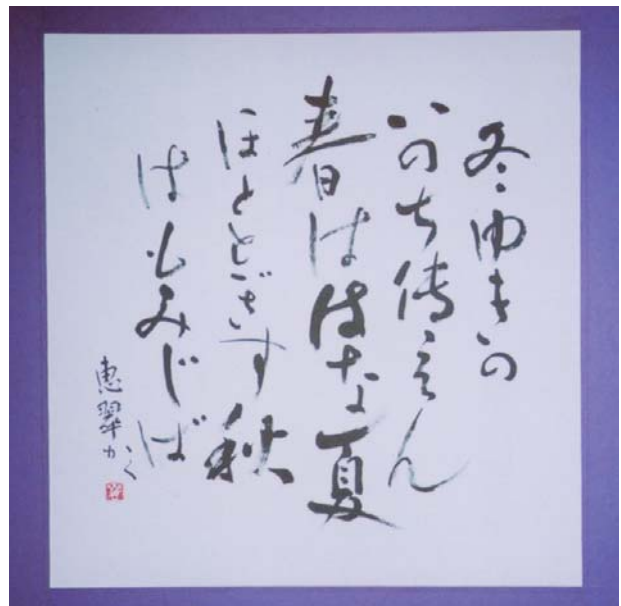 冬ゆきの
いのち傳えん
春ははな夏
ほととぎす秋
はもみじば
恵翠かく